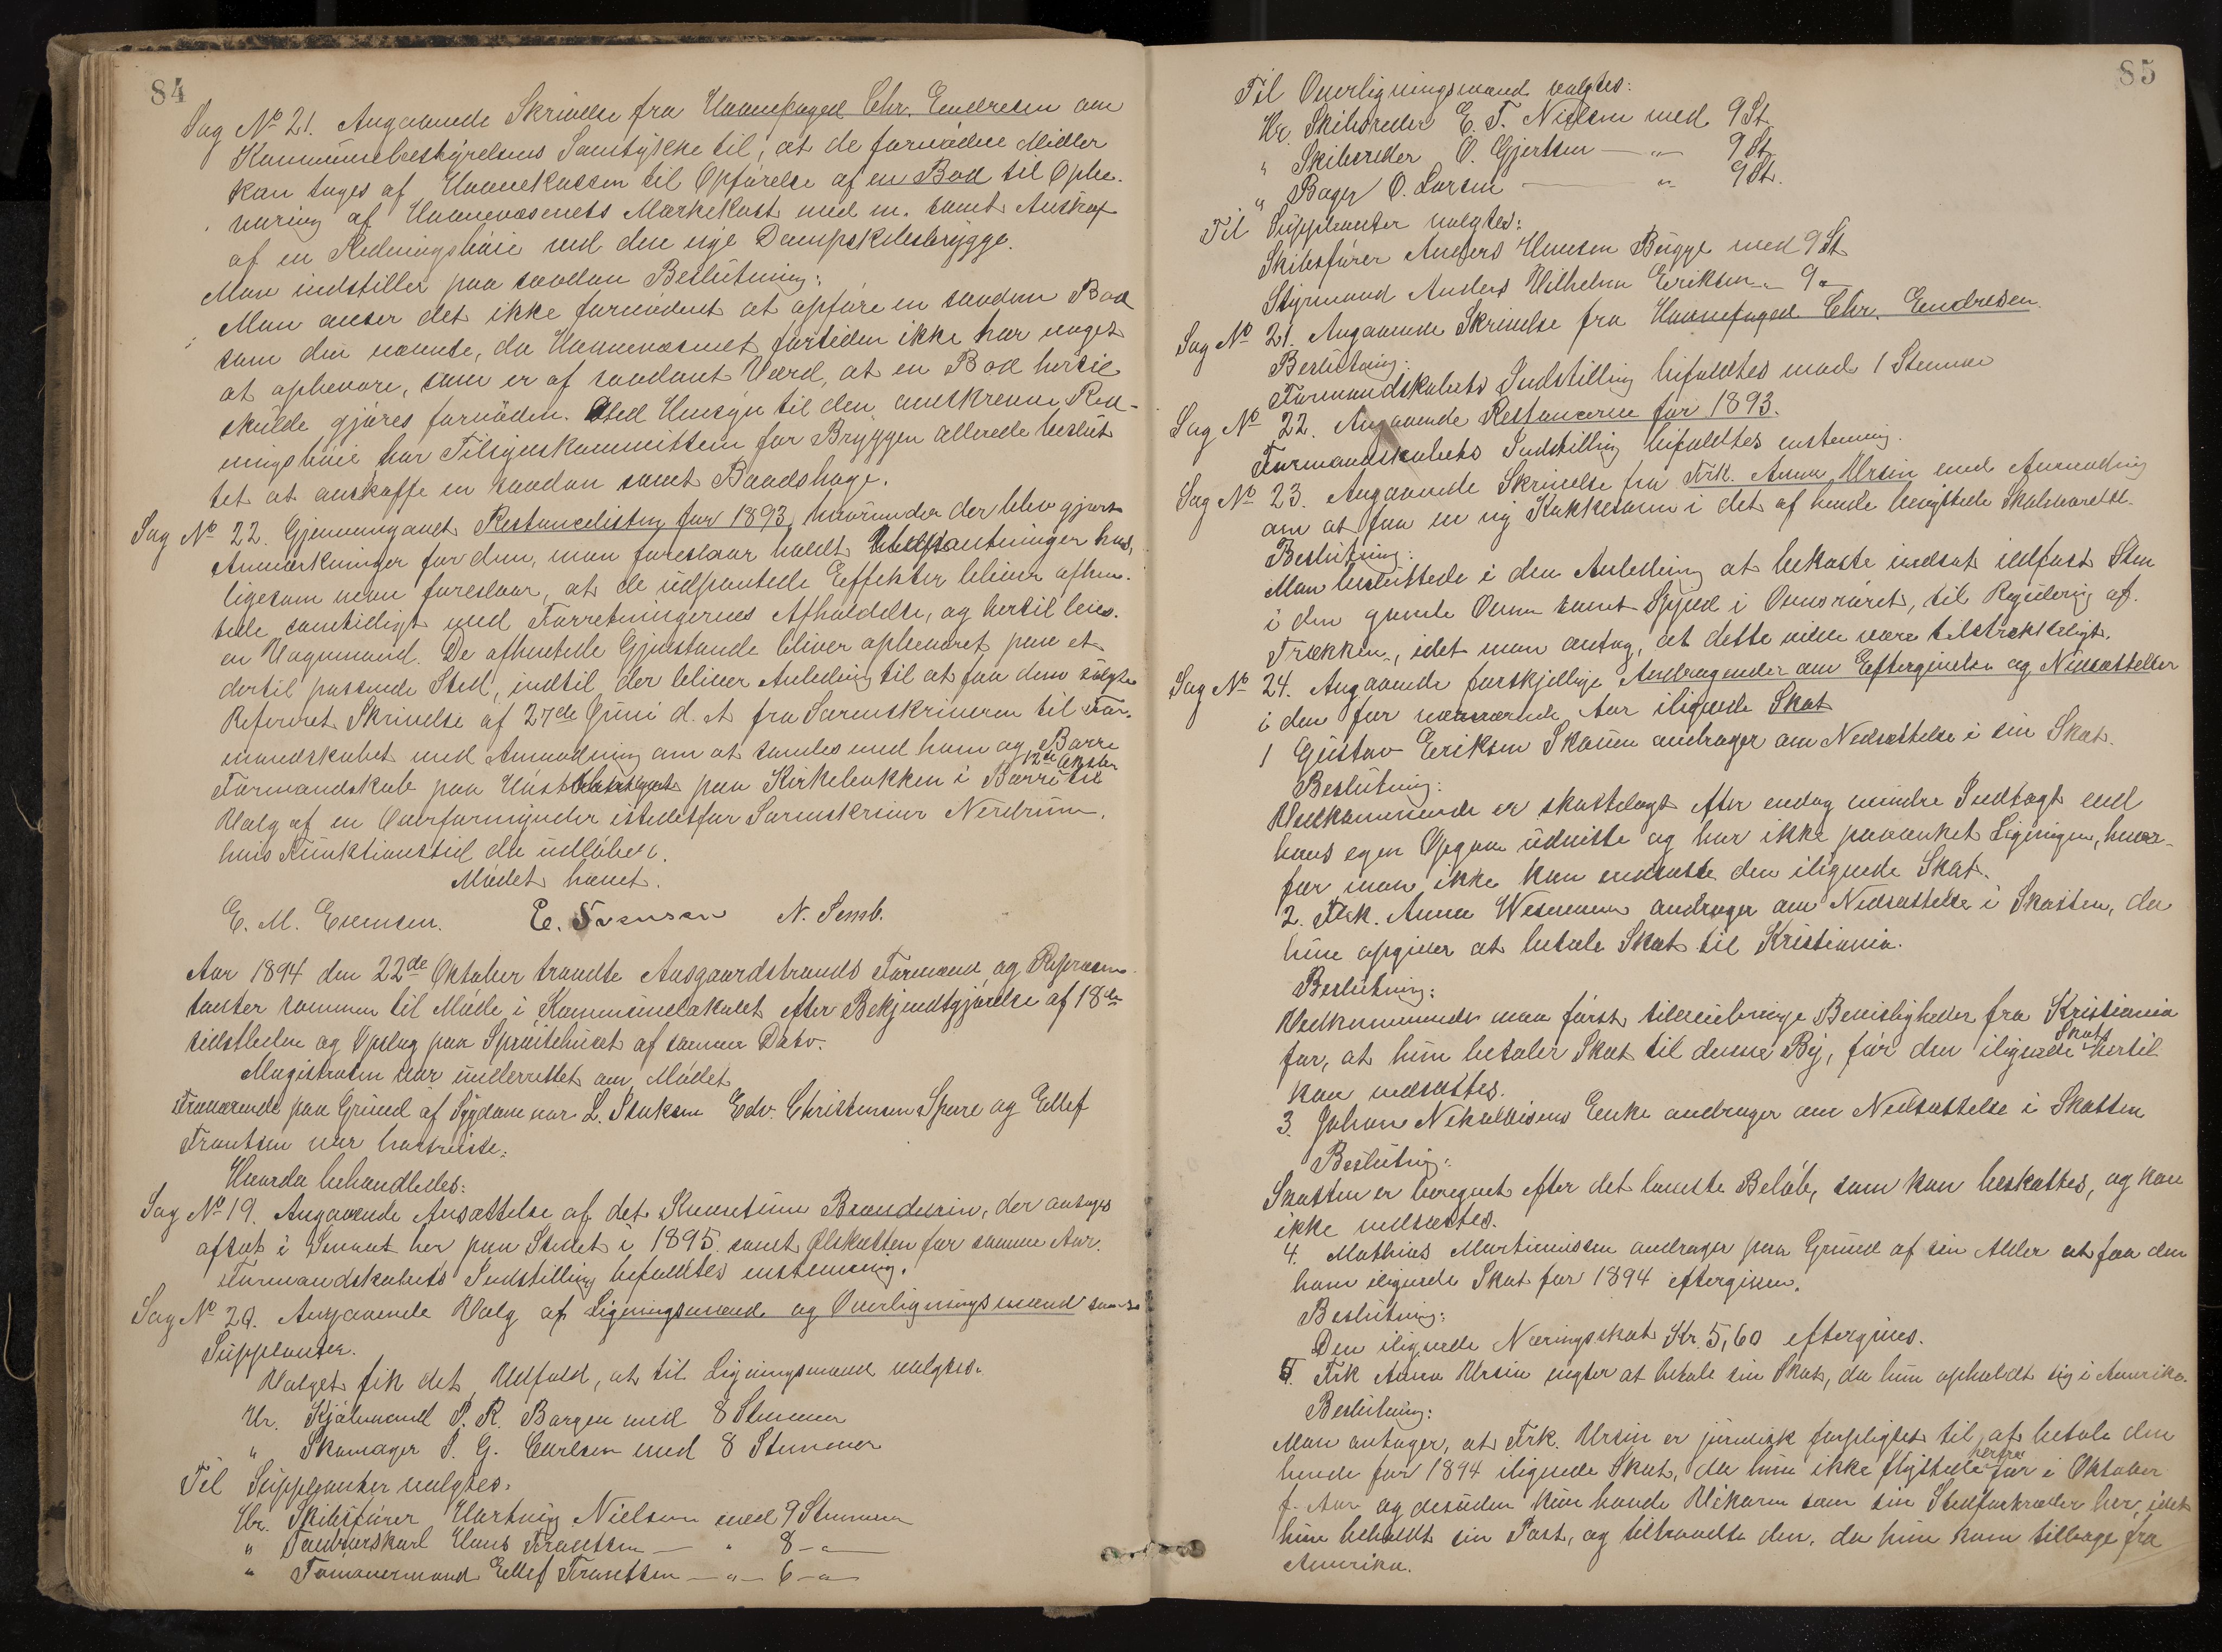 84
Sag No 21. Angaaende Skrivelse fra Havnefoged Chr. Endresen om
Kommunebestyrelsens Samtykke til, at de fornødne Midler
kan tages af Havnekassen til Opførelse af en Bod til Opbe-
varing af Havnevæsenets Mærkekost med m. samt Anskaf
af en Redningsbøie ved den nye Dampskibsbrygge.
Man indstiller paa saadan Beslutning:
Man anser det ikke fornødent at opføre en saadan Bod
som den nævnte, da Havnevæsenet fortiden ikke har noget
at opbevare, som er af saadant Værd, at en Bod hertil
skulde gjøres fornøden. Med Hensyn til den omskrevne Red-
ningsbøie har Tilsynskommitteen for Bryggen allerede beslut
tet at anskaffe en saadan samt Baadshage.
Sag No 22. Gjennemgaaet Restancelisten for 1893, hvorunder der blev gjort
Anmærkninger for dem, man foreslaar holdt Udpantninger hos,
ligesom man foreslaar, at de udpantede Effekter bliver afhen-
tede samtidigt med Forretningernes Afholdelse, og hertil leies
en Vognmand. De afhentede Gjenstande bliver opbevaret paa et
dertil passende Sted, indtil der bliver Anledning til at faa dem solgte
Refereret Skrivelse af 27de Juni d. A fra Sorenskriveren til For-
mandskabet med Anmodning om at samles med ham og Borre
Formandskab paa Høstthinget 12te Oktober paa Kirkebakken i Borre til
Valg af en Overformynder istedetfor Sorenskriver Nerdrum,
hvis Funktionstid da udløber.
Mødet hævet.
E. M. Evensen. E. Svensen N. Semb.
Aar 1894 den 22de Oktober traadte Aasgaardstrands Formænd og Repræsen-
tanter sammen til Møde i Kommunelokalet efter Bekjendtgjørelse af 18de
sidstleden og Opslag paa Sprøitehuset af samme Dato.
Magistraten var underrettet om Mødet
Fraværende paa Grund af Sygdom var L. Isaksen Edv. Christensen Spere og Ellef
Frantsen var bortreiste.
Hvorda behandledes:
Sag No 19. Angaaende Ansættelse af det Kvantum Brændevin, der antages
afsat i Smaat her paa Stedet i 1895 samt Ølskatten for samme Aar.
Formandskabets Indstilling bifaldtes enstemmig.
Sag No 20. Angaaende Valg af Ligningsmænd og Overligningsmænd samt
Supplanter.
Valget fik det Udfald, at til Ligningsmænd valgtes.
Hr. Kjøbmand P. R. Borgen med 8 Stemmer
" Skomager P. G. Carlsen med 8 Stemmer
Til Supplanter valgtes.
Hr. Skibsfører Hartvig Nielsen med 9 Stemmer
" Handelskarl Hans Frantsen — " 8 — " —
" Tømmermand Ellef Frantsen — " — 6 — " —
85
Til Overligningsmænd valgtes:
Hr. Skibsreder E. T. Nielsen med 9 St.
" Skibsreder O. Gjertsen — " — 9 St.
" Bager O. Larsen — " 9 St.
Til Supplanter valgtes:
Skibsfører Anders Hansen Bugge med 9 St
Styrmand Anders Vilhelm Eriksen " 9 "
Sag No 21. Angaaende Skrivelse fra Havnefoged Chr. Endresen
Beslutning:
Formandskabets Indstilling bifaldtes mod 1 Stemme
Sag No 22. Angaaende Restancerne for 1893.
Formandskabets Indstilling bifaldtes enstemmig.
Sag No 23. Angaaende Skrivelse fra Frk. Anna Ursin med Anmodning
om at faa en ny Kakkelovn i det af hende benyttede Skoleværelse.
Beslutning:
Man besluttede i den Anledning at bekoste indsat ildfast Sten
i den gamle Ovn samt Spjed i Ovnsrøret, til Regulering af
Trækken, idet man antog, at dette vilde være tilstrækkeligt.
Sag No 24. Angaaende forskjellige Andragender om Eftergivelse og Nedsættelser
i den for nærværende Aar ilignede Skat
1 Gustav Eriksen Skauen andrager om Nedsættelse i sin Skat.
Beslutning:
Vedkommende er skattelagt efter endog mindre Indtægt end
hans egen Opgave udviste og har ikke paaanket Ligningen, hvor-
for man ikke kan nedsætte den ilignede Skat.
2. Frk. Anna Wesmann andrager om Nedsættelse i Skatten, da
hun opgiver at betale Skat til Kristiania.
Beslutning:
Vedkommende maa først tilveiebringe Bevisligheder fra Kristiania
for, at hun betaler Skat til denne By, før den ilignede Skat hertil
kan nedsættes.
3. Johan Nikolaisens Enke andrager om Nedsættelse i Skatten
Beslutning:
Skatten er beregnet efter det laveste Beløb, som kan beskattes, og kan
ikke nedsættes.
4. Mathias Martinissen andrager paa Grund af sin Alder at faa den
ham ilignede Skat for 1894 eftergiven.
Beslutning:
Den ilignede Næringsskat Kr. 5,60 eftergives.
5. Frk Anna Ursin negter at betale sin Skat, da hun opholdt sig i Amerika.
Beslutning:
Man antager, at Frk. Ursin er juridisk forpligtet til at betale den
hende for 1894 ilignede Skat, da hun ikke flyttede herfra før i Oktober
f. Aar og desuden kun havde Vikarer som sin Stedfortræder her, idet
hun beholdt sin Post, og tiltraadte den, da hun kom tilbage fra
Amerika.